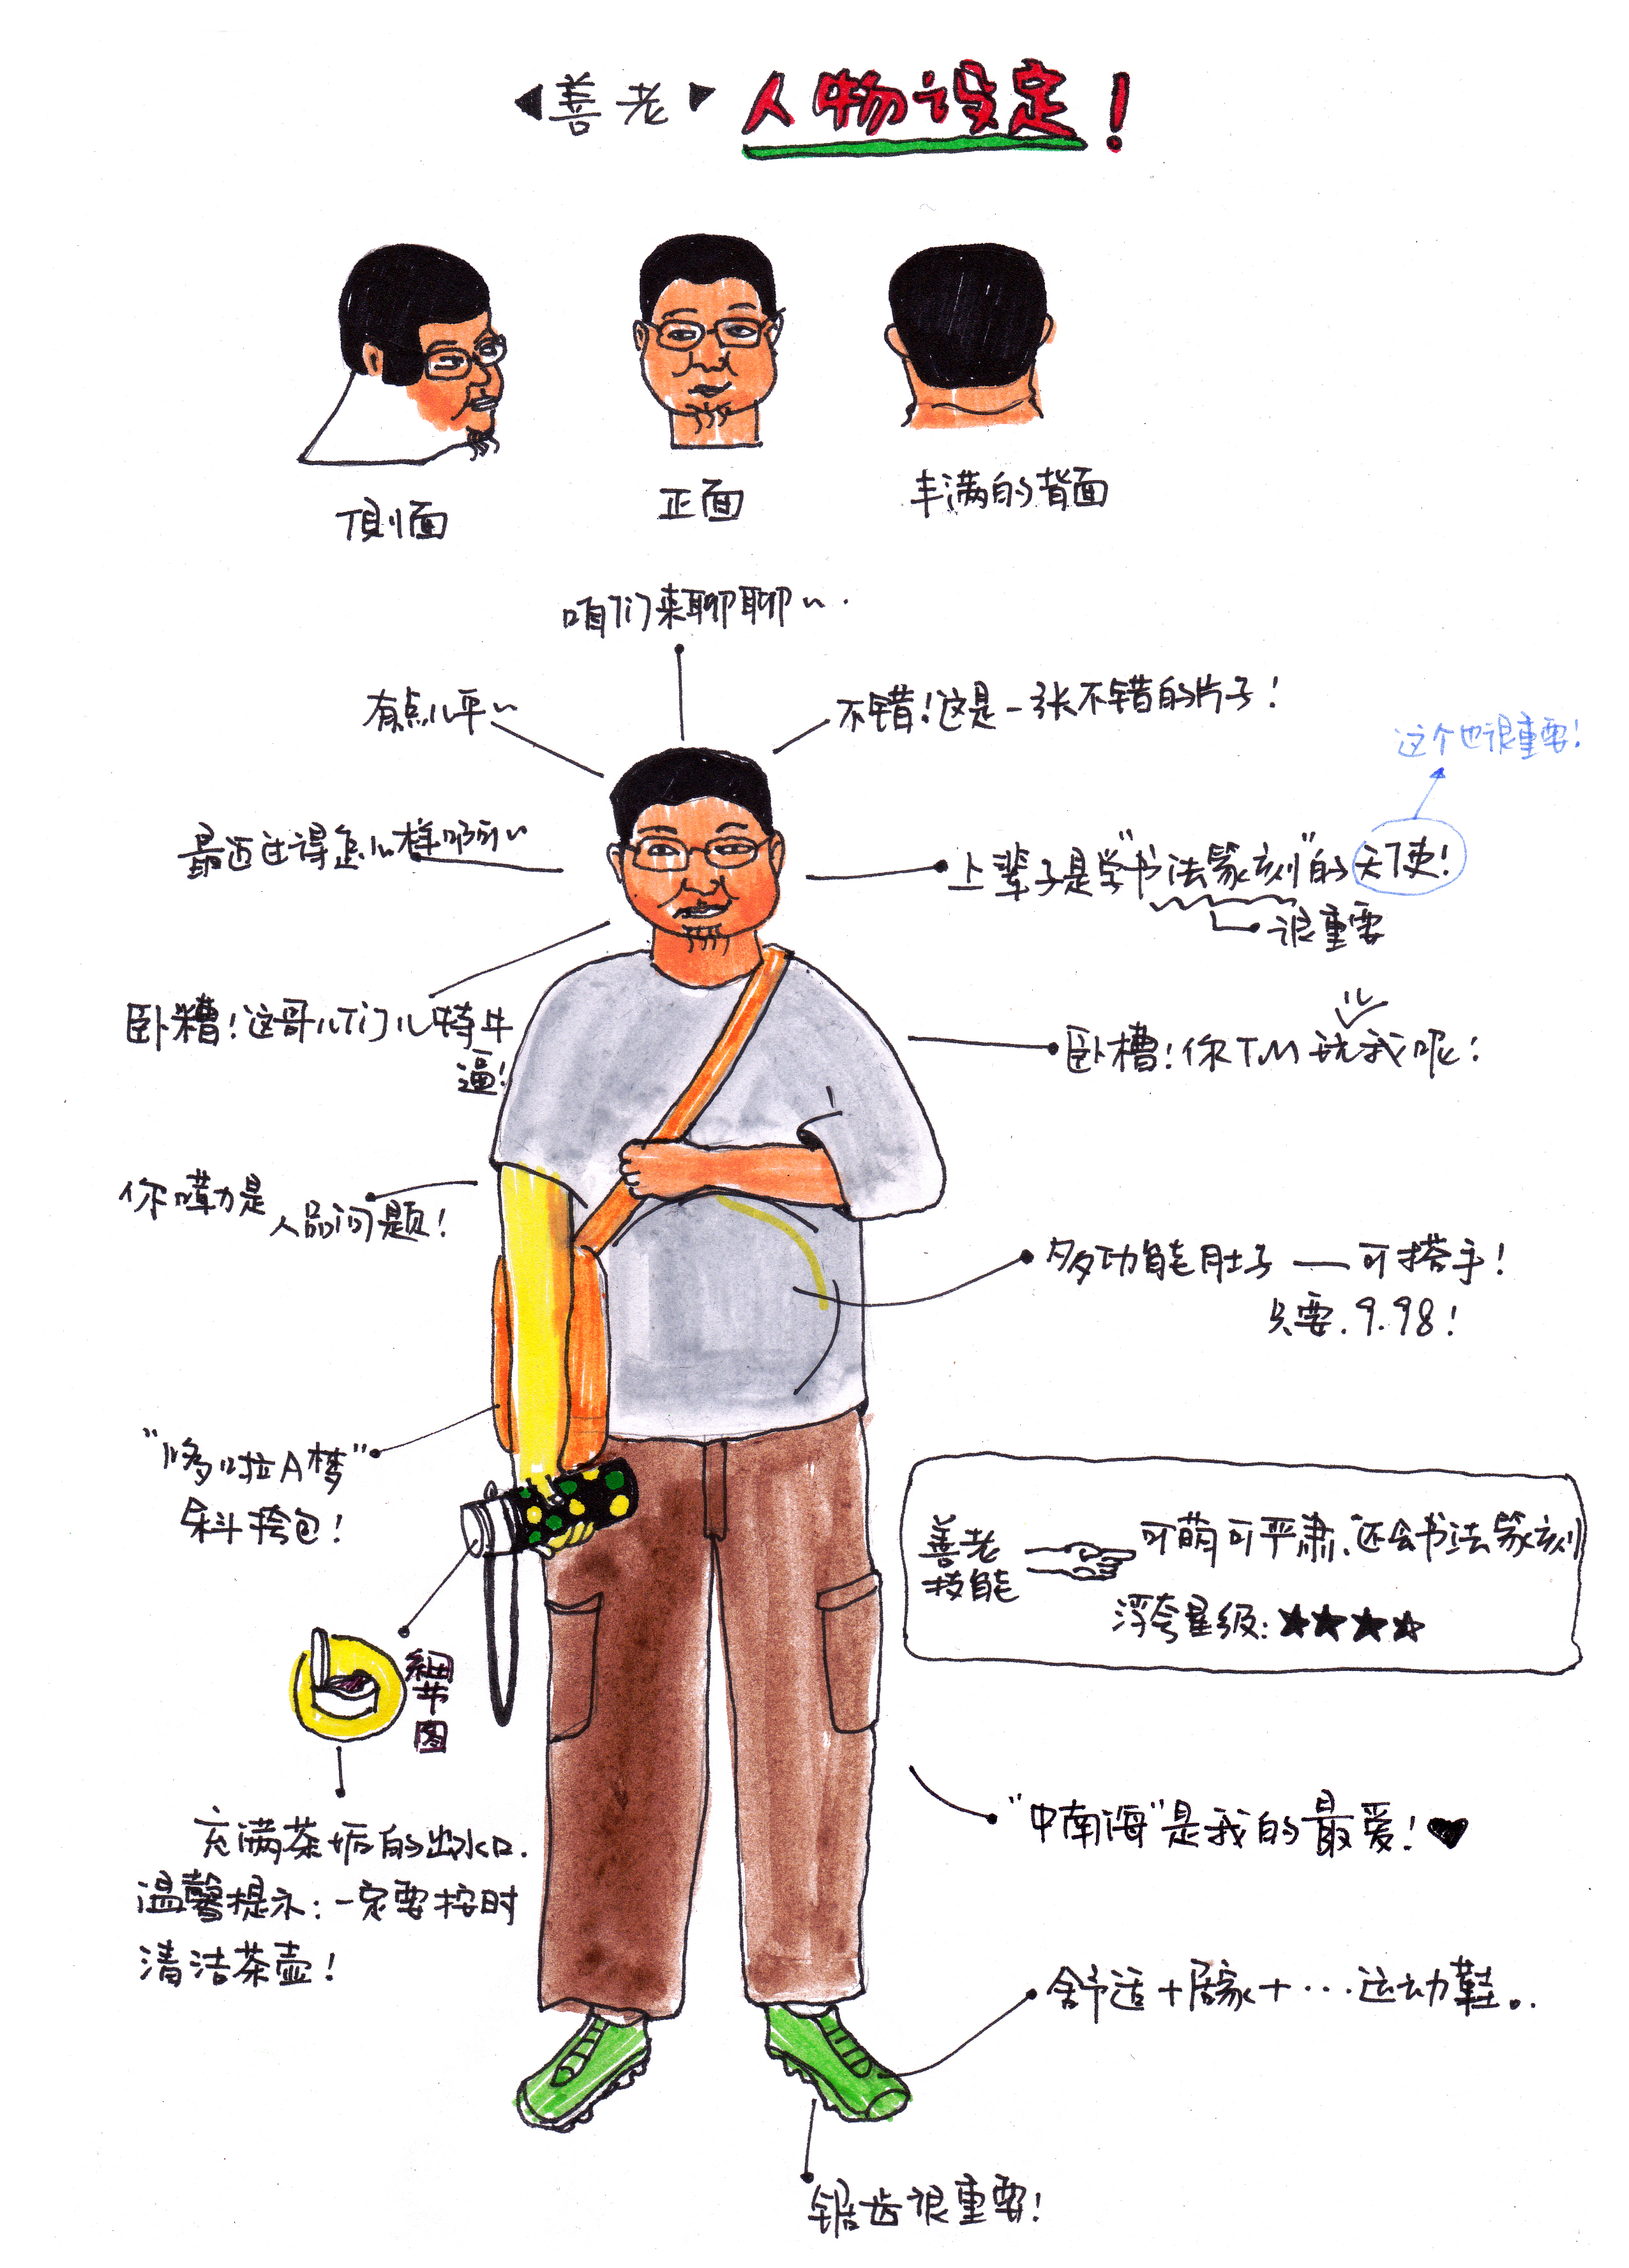 ◀善老▶ 人物设定！
侧面
正面
丰满的背面
咱们来聊聊~.
有点儿平~
不错！这是一张不错的片子！
这个也很重要！
最近过得怎么样啊~
上辈子是学"书法篆刻"的天使！
很重要
卧糟！这哥儿们儿特牛
逼！
卧槽！你TM玩我呢！
你嘞是
人品问题！
多功能肚子——可搭手！
只要.9.98！
"哆啦A梦"
斜挎包！
善老
技能
可萌可严肃、还会书法篆刻
浮夸星级：★★★★
细节图
充满茶垢的出水口.
温馨提示：一定要按时
清洁茶壶！
"中南海"是我的最爱！♥
舒适+居家+···运动鞋。.
锯齿很重要！